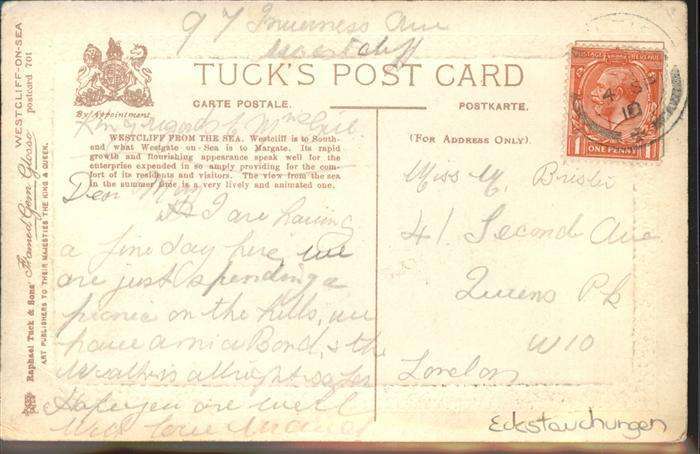 97 Inverness Ave
Westcliff
TUCK'S POST CARD
CARTE POSTALE.
POSTKARTE.
By Appointment
Kind regards
WESTCLIFF FROM THE SEA. Westcliff is to South-
end what Westgate-on-Sea is to Margate. Its rapid
growth and flourishing appearance speak well for the
enterprise expended in so amply providing for the com-
fort of its residents and visitors. The view from the sea
in the summer time is a very lively and animated one.
Dear
I are having
a fine day here, we
are just spending a
picnic on the hills, we
have a nice Band, & the
Weather is allright so far
Hope you are well
With love
WESTCLIFF-ON-SEA
postcard 701
Raphael Tuck & Sons' Framed Gem Glosso
ART PUBLISHERS TO THEIR MAJESTIES THE KING & QUEEN.
(FOR ADDRESS ONLY).
POSTAGE REVENUE
ONE PENNY
1 1
Miss M. Brister
41 Second Ave
Queens Pk
W10
London
Eckstauchungen